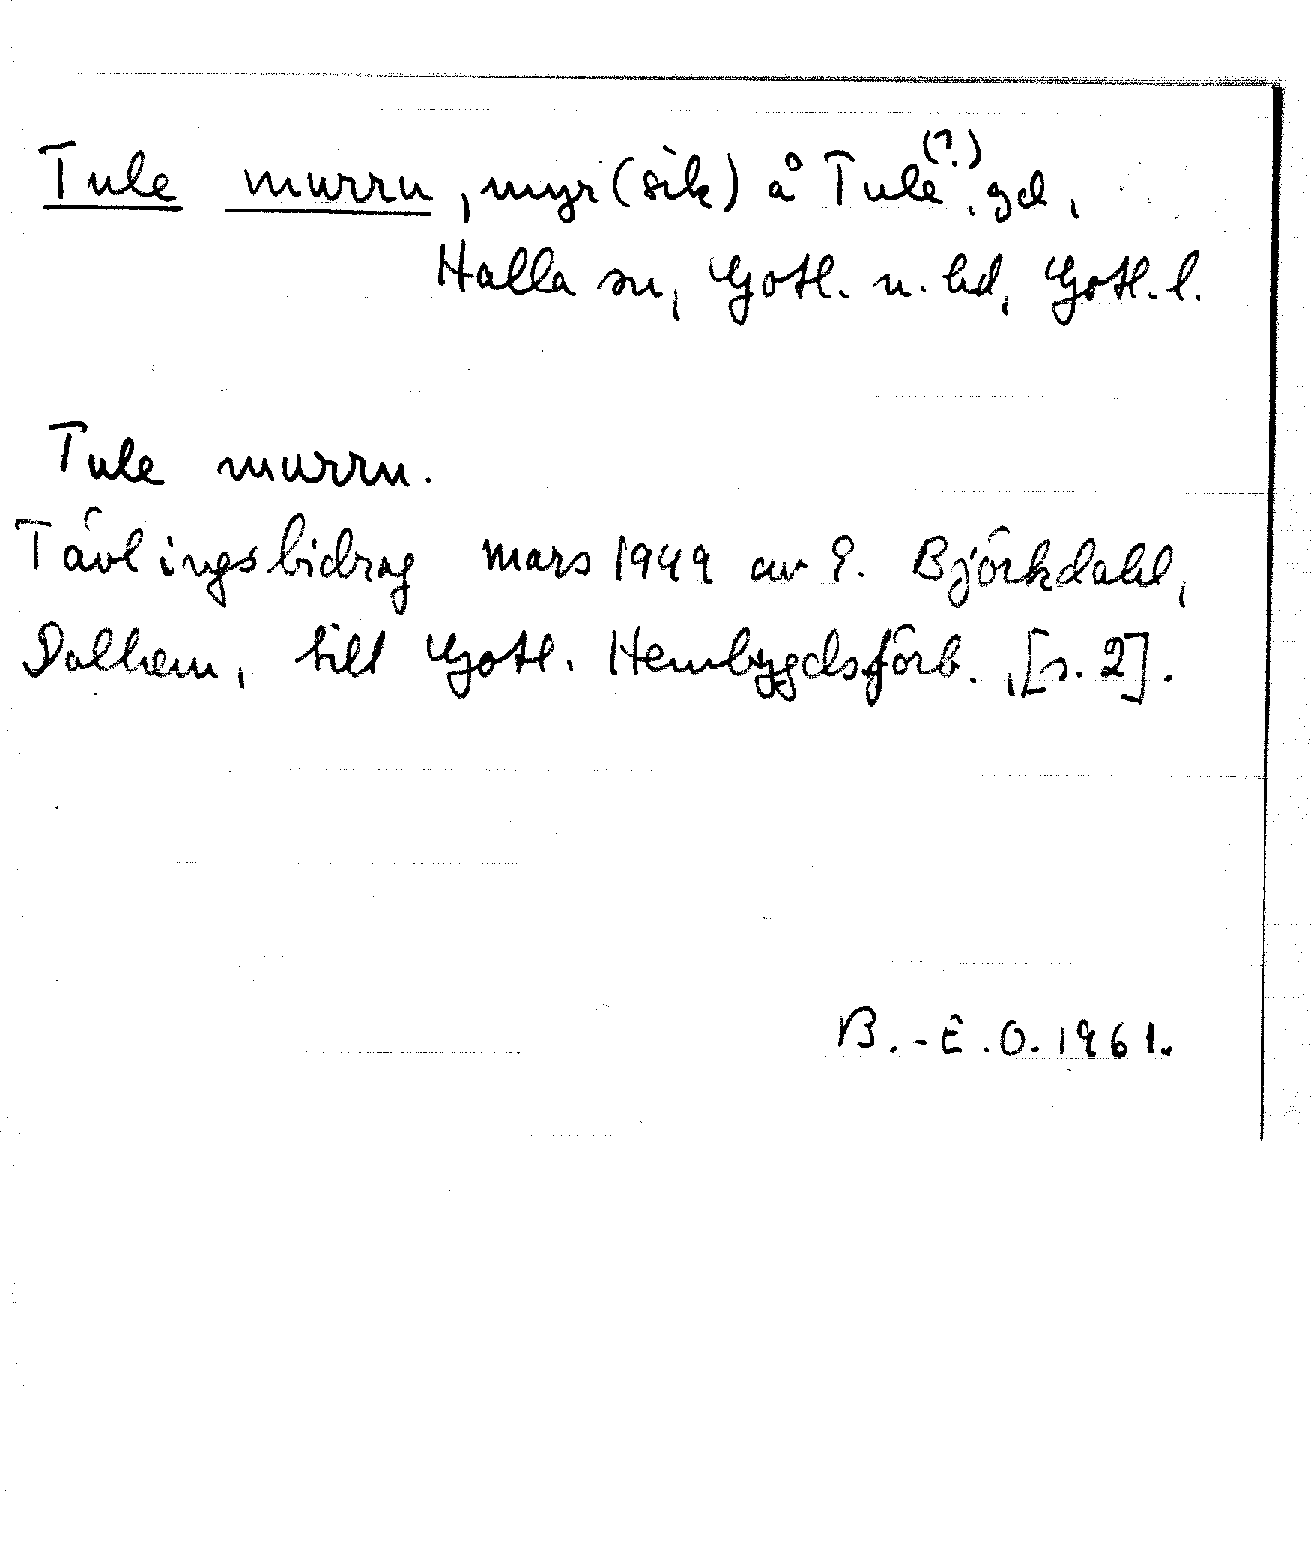 Tule murru, myr (sik) å Tule (?), gd,
Halla sn, Gotl. n. hd, Gotl. l.
Tule murru.
Tävlingsbidrag mars 1949 av E. Björkdahl,
Dalhem, till Gotl. Hembygdsförb., [s. 2].
B.-E.O. 1961.